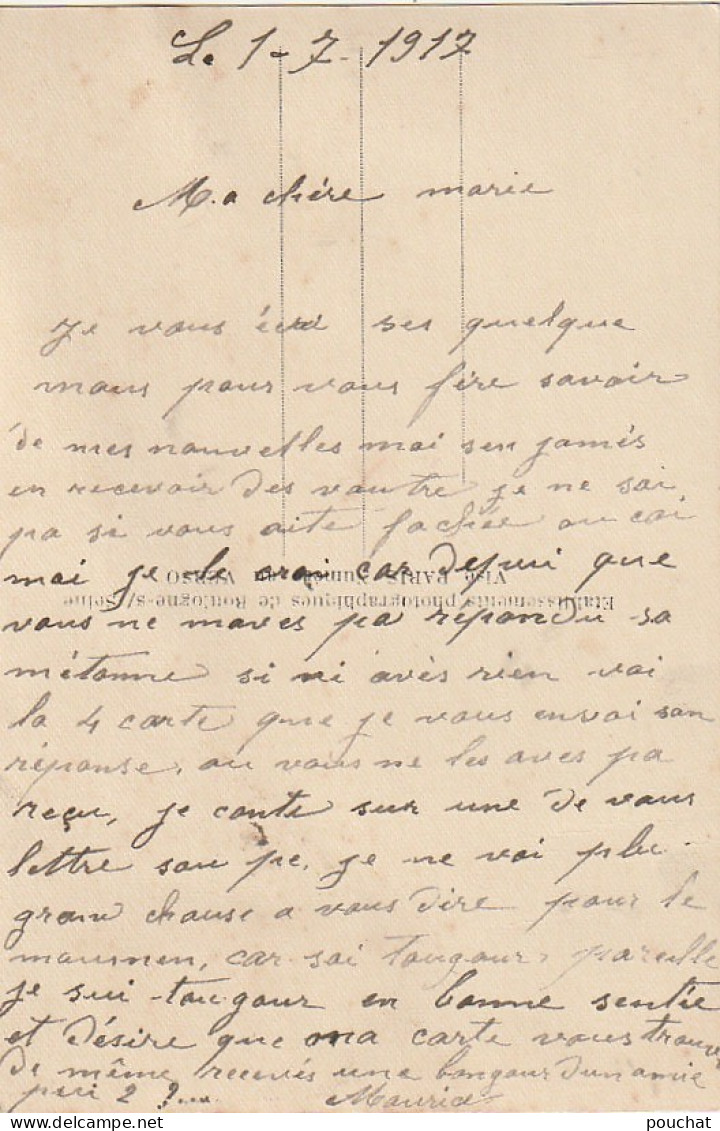 Le 1-7-1917
Ma chére marie
Je vous écri ses quelque
mous pour vous fére savoir
de mes nouvelles moi sen jamés
en recevoir des vautre je ne sai
pa si vous aite fachée ou coi
moi je le croi car depui que
vous ne maves pa répondu sa
métonne si ni avés rien voi
la 4 carte que je vous envoi san
réponse, ou vous ne les aves pa
reçu, je conte sur une de vous
lettre sou pe, je ne voi plu
grand chause a vous dire pour le
moumen, car sai tougour pareille
je sui tougour en bonne sentée
et désire que ma carte vous trouve
de même recevés une bongour dun amie
pui 2 ?....
Maurice
Etablissements photographiques de Boulogne-s/Seine
Visé PARIS Numéro au VERSO
pouchat